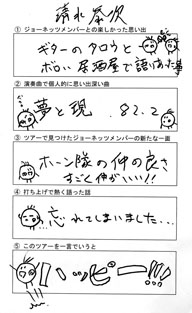 清水 泰次
① ジョーネッツメンバーとの楽しかった思い出
ギターのタロウと
ボロい居酒屋で語りあった事
② 演奏曲で個人的に思い出深い曲
夢と現 . 82.2
③ ツアーで見つけたジョーネッツメンバーの新たな一面
ホーン隊の仲の良さ
すごく仲がいい!!
④ 打ち上げで熱く語った話
忘れてしまいました...
⑤ このツアーを一言でいうと